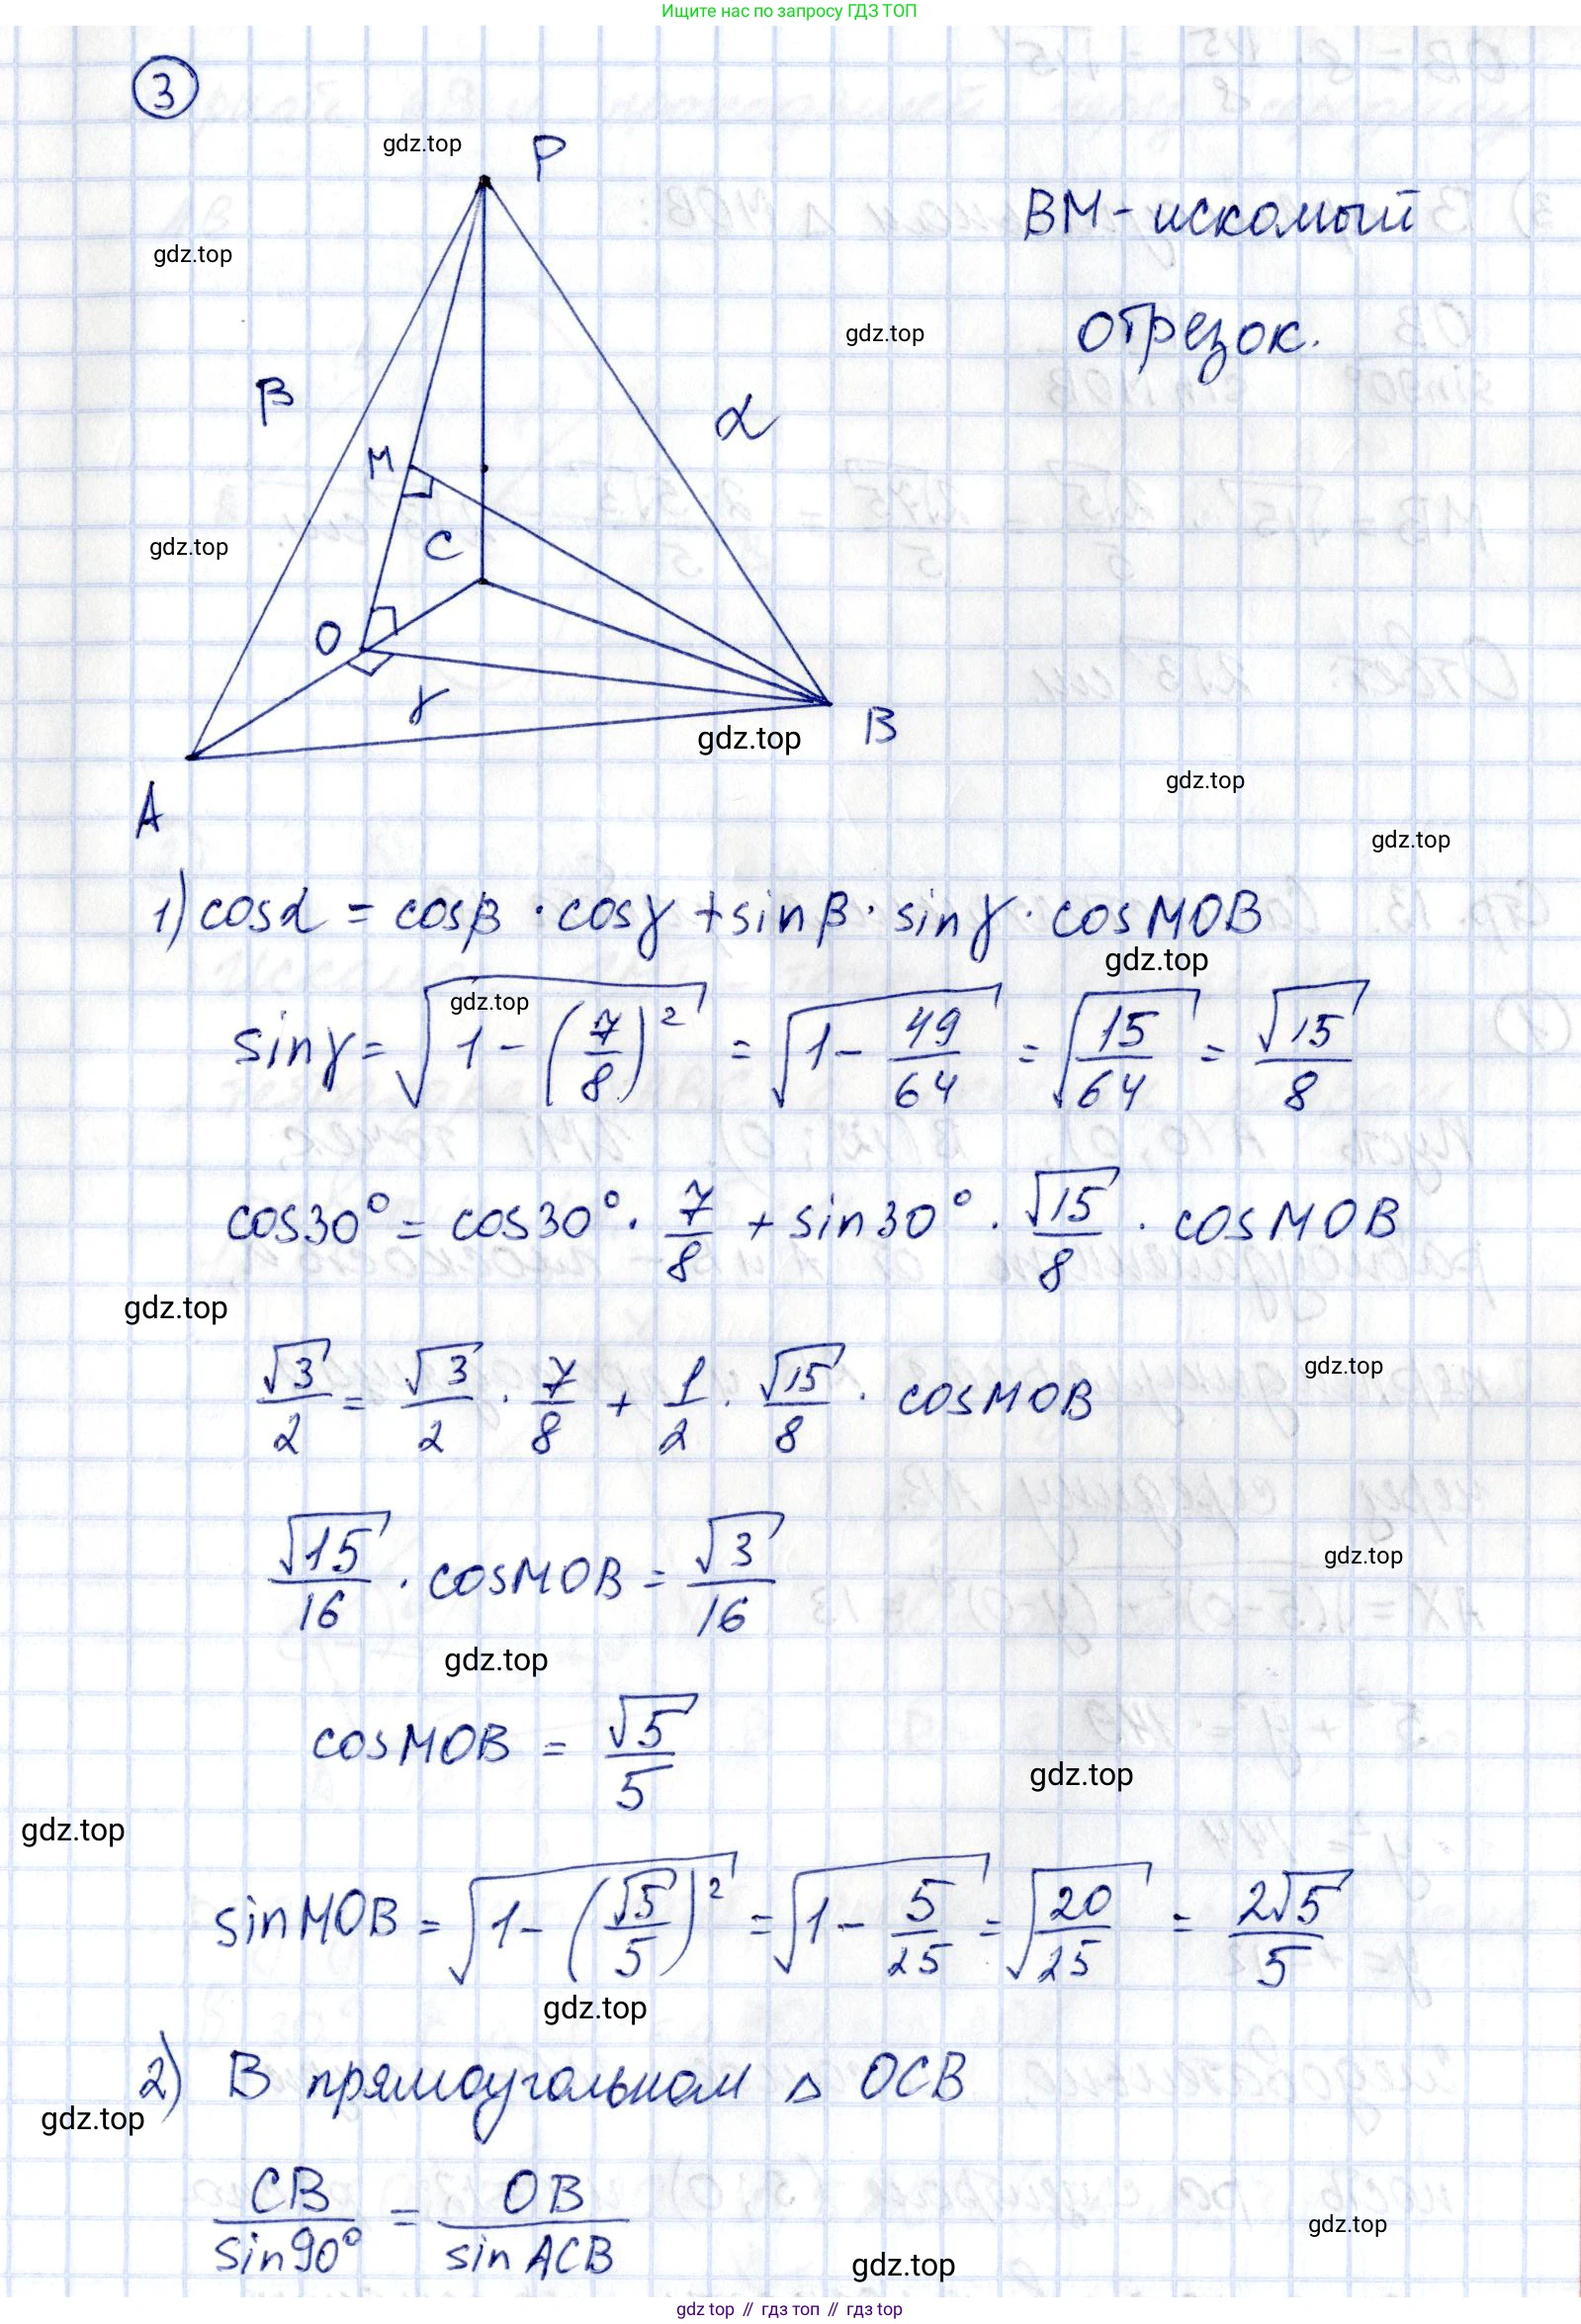 Ищите нас по запросу ГДЗ ТОП
3
gdz.top
P
gdz.top
BM - искомый
отрезок.
gdz.top
β
α
M
gdz.top
C
O
γ
gdz.top
B
A
gdz.top
gdz.top
1) cosα = cosβ · cosγ + sinβ · sinγ · cosMOB
gdz.top
gdz.top
sinγ = √(1 - (7/8)²) = √(1 - 49/64) = √(15/64) = √15/8
cos30° = cos30° · 7/8 + sin30° · √15/8 · cosMOB
gdz.top
gdz.top
√3/2 = √3/2 · 7/8 + 1/2 · √15/8 · cosMOB
gdz.top
√15/16 · cosMOB = √3/16
gdz.top
cosMOB = √5/5
gdz.top
gdz.top
sinMOB = √(1 - (√5/5)²) = √(1 - 5/25) = √(20/25) = 2√5/5
gdz.top
2) В прямоугольном △ OCB
gdz.top
CB/sin90° = OB/sinACB
gdz.top
gdz.top
gdz top // гдз топ // гдз top